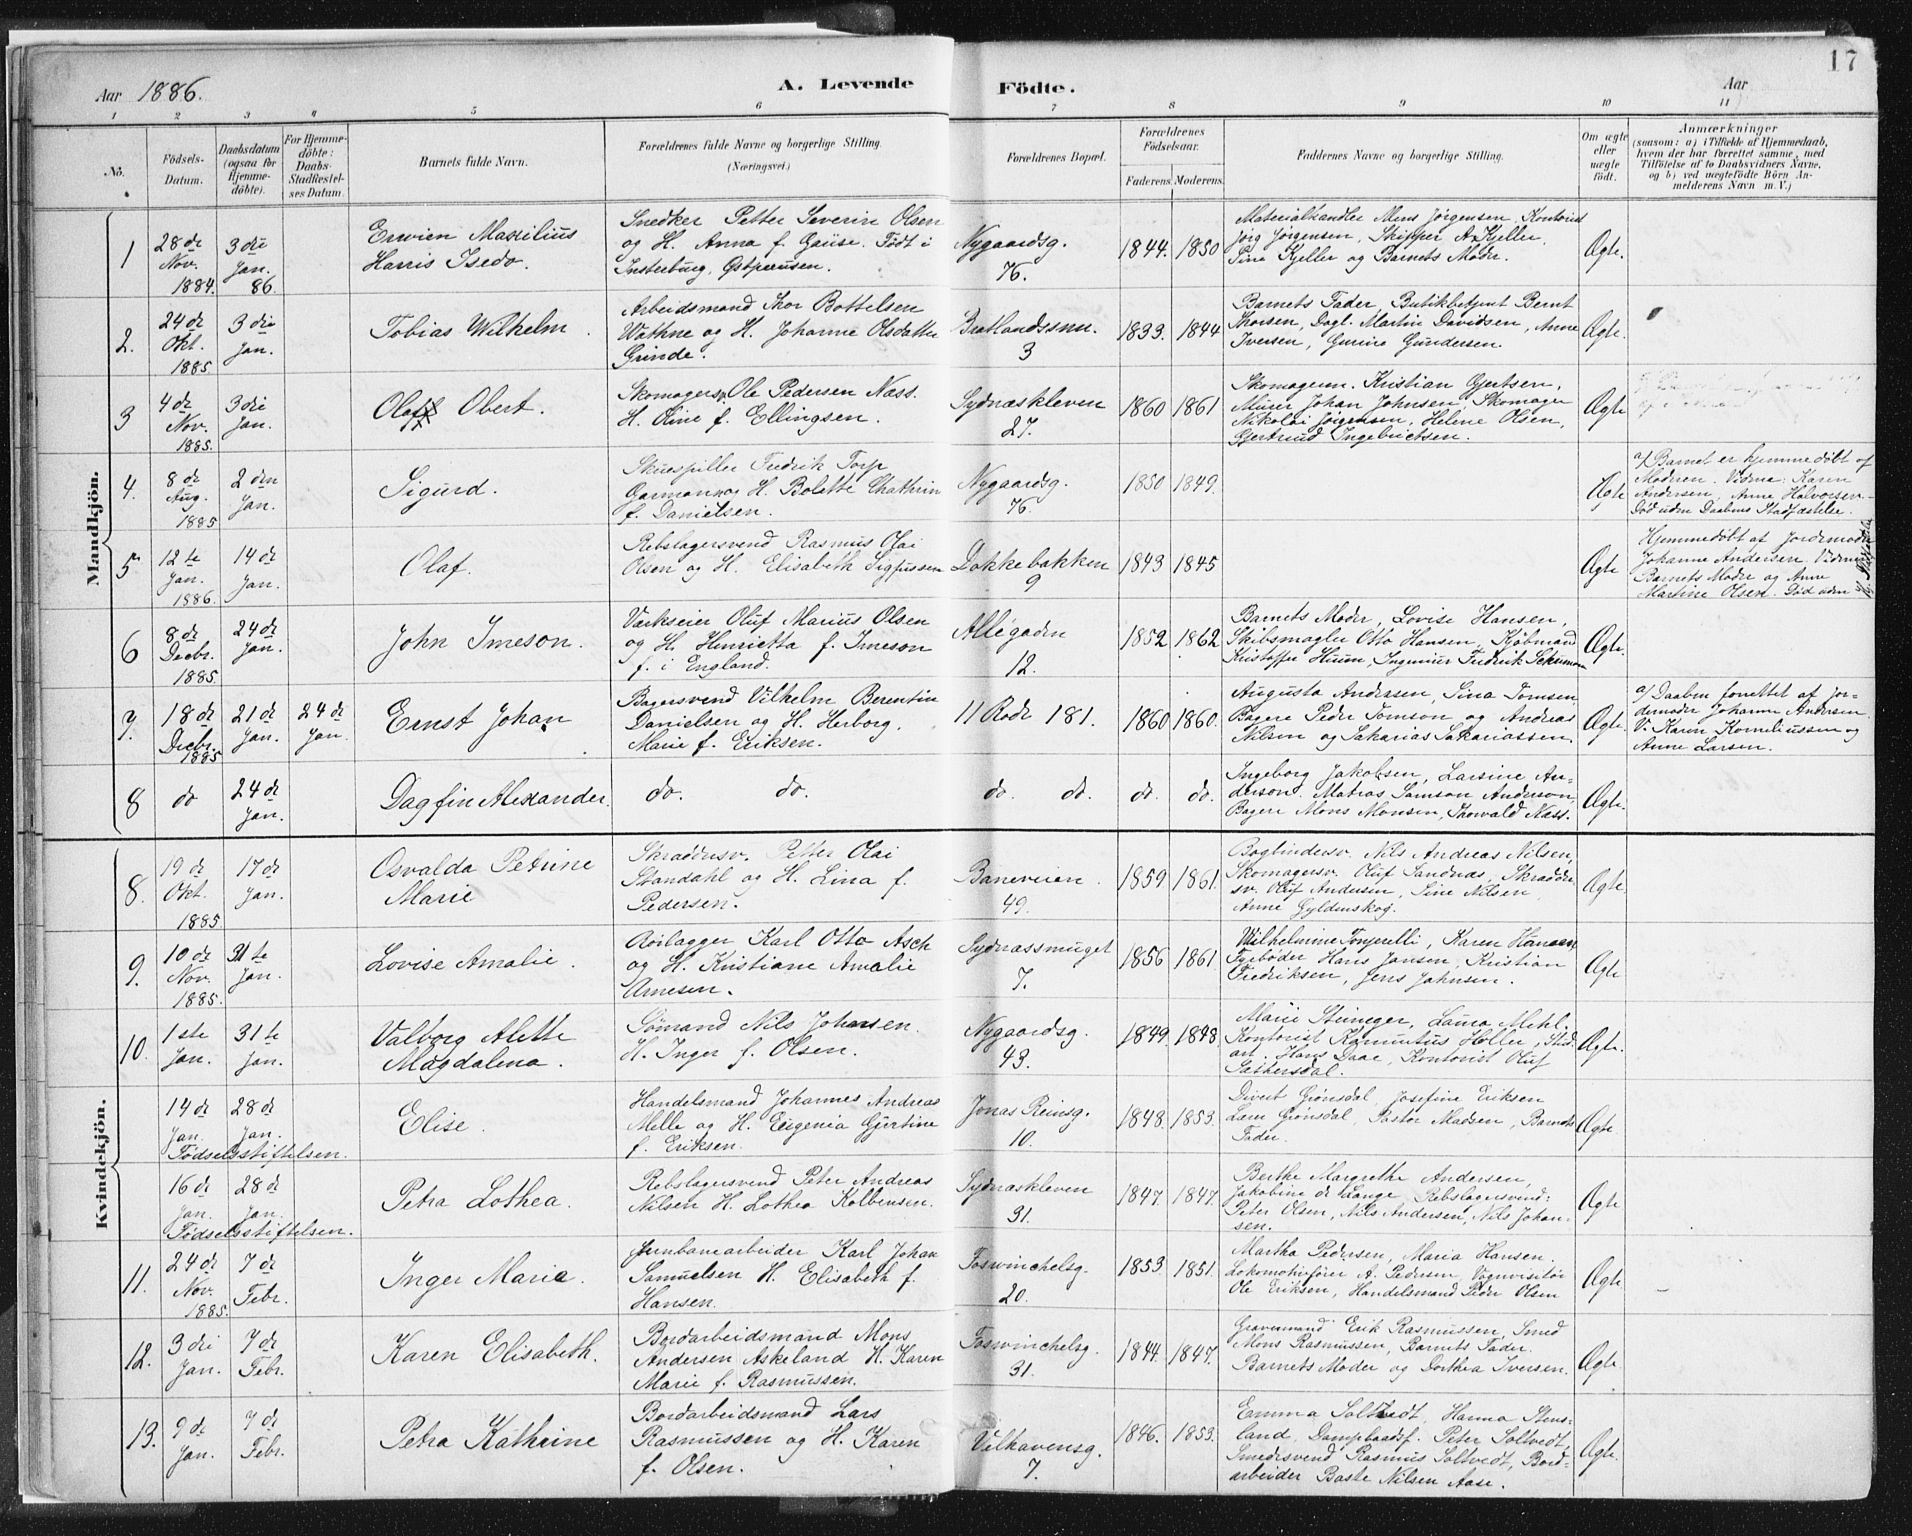 17
Aar 1886. A. Levende Födte. Aar
1 2 3 4 5 6 7 8 9 10 11
No.
Födsels-
Datum.
Daabsdatum
(ogsaa for
Hjemme-
döbte).
For Hjemme-
döbte:
Daabs-
Stadfæstel-
ses Datum.
Barnets fulde Navn.
Forældrenes fulde Navne og borgerlige Stilling.
(Næringsvei.)
Forældrenes Bopæl.
Forældrenes
Födselsaar.
Faderens. Moderens.
Faddernes Navne og borgerlige Stilling.
Om ægte
eller
uægte
født.
Anmærkninger
(saasom: a) i Tilfælde af Hjemmedaab,
hvem der har forrettet samme, med
Tilföielse af to Daabsvidners Navne,
og b) ved uægtefödte Börn An-
melderens Navn m. V.)
Mandkjön.
1
28de
Nov.
1884.
3die
Jan.
86.
Erwien Maxilius
Harris Isedo.
Snedker Petter Severin Olsen
og H. Anna f. Gause. Født i
Insterburg, Østpreusen.
Nygaardsg.
76.
1844. 1850
Materialhandler Mens Jørgensen, Kontorist
Jørg Jørgensen, Skipper A. Kjeller,
Sina Kjeller og Barnets Moder.
Ægte.
2.
24de
Okt.
1885.
3die
Jan.
Tobias Wilhelm
Arbeidsmand Thor Bottelsen
Wathne og H. Johanne Olsdatter
Grinde.
Bratlandssmu.
3
1833. 1844
Barnets Fader, Butikbetjent Bernt
Thorsen, Dagl. Martin Davidsen, Anne
Iversen, Gurine Gundersen.
Ægte.
3
4de
Nov.
1885.
3die
Jan.
Olaf Obert.
Skomagersv. Ole Pedersen Næss.
H. Oline f. Ellingsen.
Sydnæskleven
27.
1860 1861
Skomagersv. Kristian Gjertsen,
Murer Johan Johnsen, Skomager
Nikolai Jørgensen, Helene Olsen,
Gjertrud Ingebrictsen.
Ægte
4.
8de
Aug.
1885
2den
Jan.
Sigurd.
Skuespiller Fredrik Torp
Garmann og H. Bolette Chathrin
f. Danielsen.
Nygaardsg.
76.
1850 1849.
Ægte
a/ Barnet er hjemmedøbt af
Moderen. Vidner: Karen
Andersen, Anne Halvorsen.
Død uden Daabens Stadfæstelse.
5
12te
Jan.
1886.
14de
Jan.
Olaf.
Rebslagersvend Rasmus Olai
Olsen og H. Elisabeth Sigfussen
Dokkebakken
9
1843 1845
Ægte
Hjemmedøbt af Jordemoder
Johanne Andersen. Vidner
Barnets Moder og Anne
Martine Olsen. Død uden
6
8de
Decbr.
1885.
24de
Jan.
John Imeson.
Værkseier Oluf Marius Olsen
og H. Henrietta f. Imeson
f. i England.
Allégaden
12.
1852 1862
Barnets Moder, Lovise Hansen,
Skibsmægler Otto Hansen, Kjøbmand
Kristoffer Huun, Ingeniør Fredrik Schumann
Ægte.
7.
18de
Decbr.
1885
21de
Jan.
24de
Jan.
Ernst Johan
Bagersvend Vilhelm Berentin
Danielsen og H. Herborg
Marie f. Eriksen.
11 Rode 181.
1860 1860.
Augusta Andersen, Sina Tomsen
Bager Peder Tomson og Andreas
Nilsen og Sakarias Sakariassen.
Ægte.
a/ Daaben forrettet af Jor-
demoder Johanne Andersen.
V. Karen Korneliussen og
Anne Larsen.
8
do
24de
Jan.
Dagfin Alexander.
do. do.
do. do. do. do.
Ingeborg Jakobsen, Larsine An-
derson. Matros Samson Anderson,
Bager Mons Monsen, Thorvald Næss.
Ægte.
Kvindekjön.
8.
19de
Okt.
1885
17de
Jan.
Osvalda Petrine
Marie
Skræddersv. Petter Olai
Standahl og H. Lina f.
Pedersen.
Baneveien.
49.
1859. 1861.
Bogbindersv. Nils Andreas Nilsen,
Skomagersv. Oluf Sandnæs, Skrædder-
sv. Oluf Andersen, Sine Nilsen
Anne Gyldenskog.
Ægte
9.
10de
Nov.
1885.
31te
Jan.
Lovise Amalie.
Rørlægger Karl Otto Asch
og H. Kristiane Amalie
Arnesen.
Sydnæssmuget
7.
1856 1861.
Wilhelmine Tonjerelli, Karen Hansen
Fyrbøder Hans Jansen, Kristian
Fredriksen, Jens Johnsen.
Ægte
10.
1ste
Jan.
31te
Jan.
Valborg Alette
Magdalena.
Sømand Nils Johansen.
H. Inger f. Olsen.
Nygaardsg.
43.
1849. 1848.
Marie Steineger, Laura Mehl.
Kontorist Rasmus Holler, Stud.
art. Hans Daae, Kontorist Oluf
Sathersdal.
Ægte.
14de
Jan.
28de
Jan.
Fødselsstiftelsen.
Elise.
Handelsmand Johannes Andreas
Melle og H. Eugenia Gjertine
f. Eriksen.
Jonas Reinsg.
10.
1848. 1853.
Divert Grönsdal, Josefine Eriksen
Lars Grønsdal, Pastor Madsen, Barnets
Fader.
Ægte
16de
Jan.
28de
Jan.
Fødselsstiftelsen.
Petra Lothea.
Rebslagersvend Peter Andreas
Nilsen H. Lothea Kolbensen.
Sydnæskleven
31.
1847. 1847.
Berthe Margrethe Andersen,
Jakobine de Lange, Rebslagersvend:
Peter Olsen, Nils Andersen, Nils Johan-
sen.
Ægte
11.
24de
Nov.
1885.
7de
Febr.
Inger Marie.
Jernbanearbeider Karl Johan
Samuelsen H. Elisabeth f.
Hansen.
Foswinchelsg.
20.
1853 1851.
Martha Pedersen, Maria Hansen.
Lokomotivfører A. Pedersen, Vognvisitør
Ole Eriksen, Handelsmand Peder Olsen
Ægte
12.
3die
Jan.
7de
Febr.
Karen Elisabeth.
Bordarbeidsmand Mons
Andersen Askeland H. Karen
Marie f. Rasmussen.
Foswinchelsg.
31.
1844. 1847.
Gravermand Erik Rasmussen, Smed
Mons Rasmussen, Barnets Fader.
Barnets Moder og Dorthea Iversen.
Ægte
13.
9de
Jan.
7de
Febr.
Petra Kathrine
Bordarbeidsmand Lars
Rasmussen og H. Karen
f. Olsen.
Vilhavensg.
7.
1846. 1853.
Emma Soltvedt, Hanna Stens-
land, Dampbaadsf. Peter Soltvedt,
Smedesvend Rasmus Soltvedt, Bord-
arbeider Baste Nilsen Aase.
Ægte.